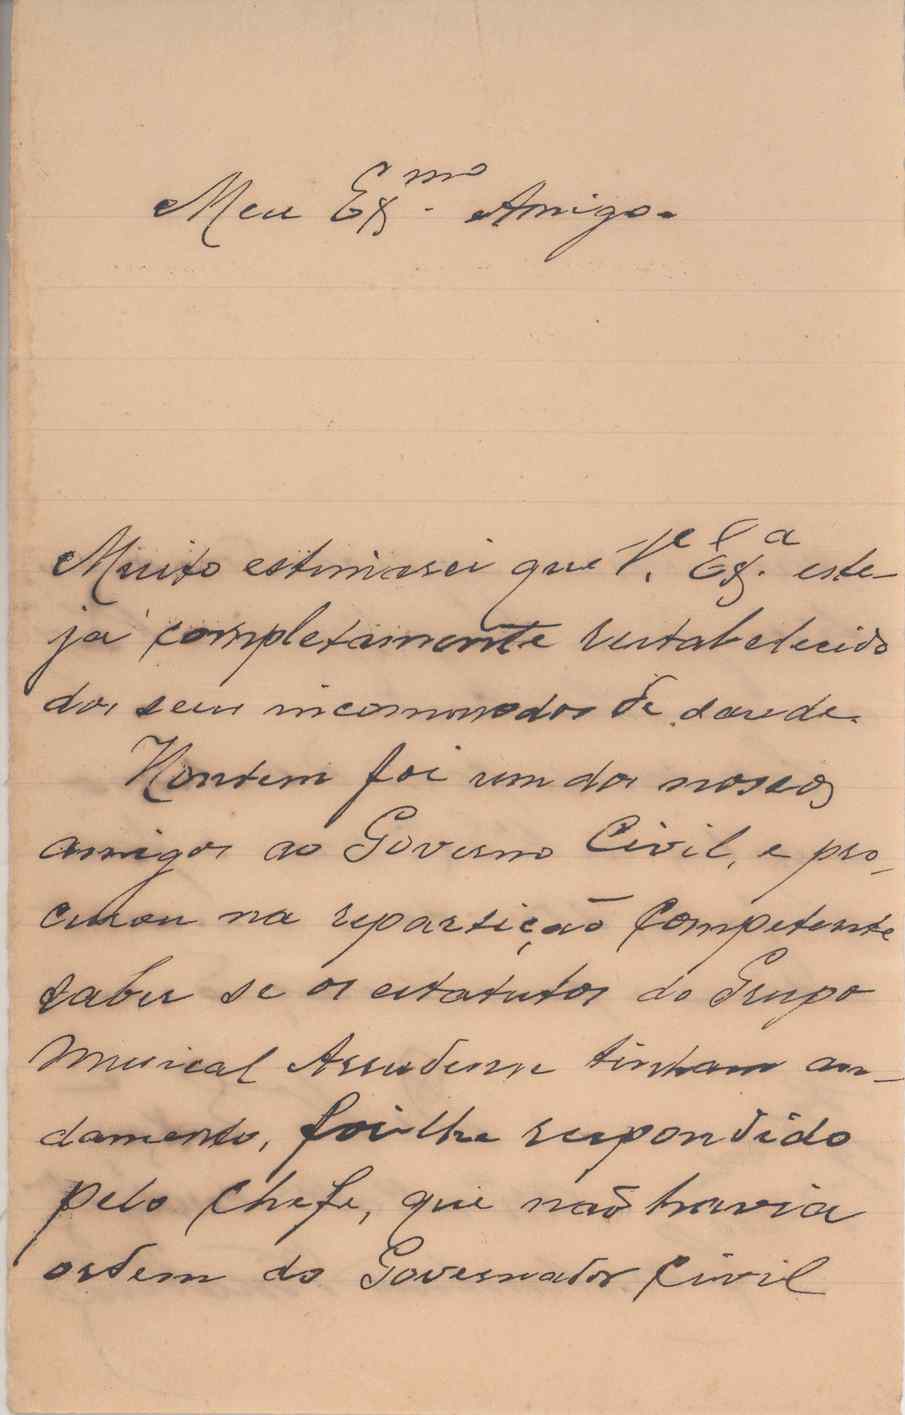 Meu Exmo. Amigo.
Muito estimarei que V. Exa. este-
ja completamente restabelecido
dos seus incommodos de saude.
Hontem foi um dos nossos
amigos ao Governo Civil, e pro-
curou na repartição competente
saber se os estatutos do Grupo
Musical Arrudense tinham an-
damento, foi-lhe respondido
pelo chefe, que não havia
ordem do Governador Civil